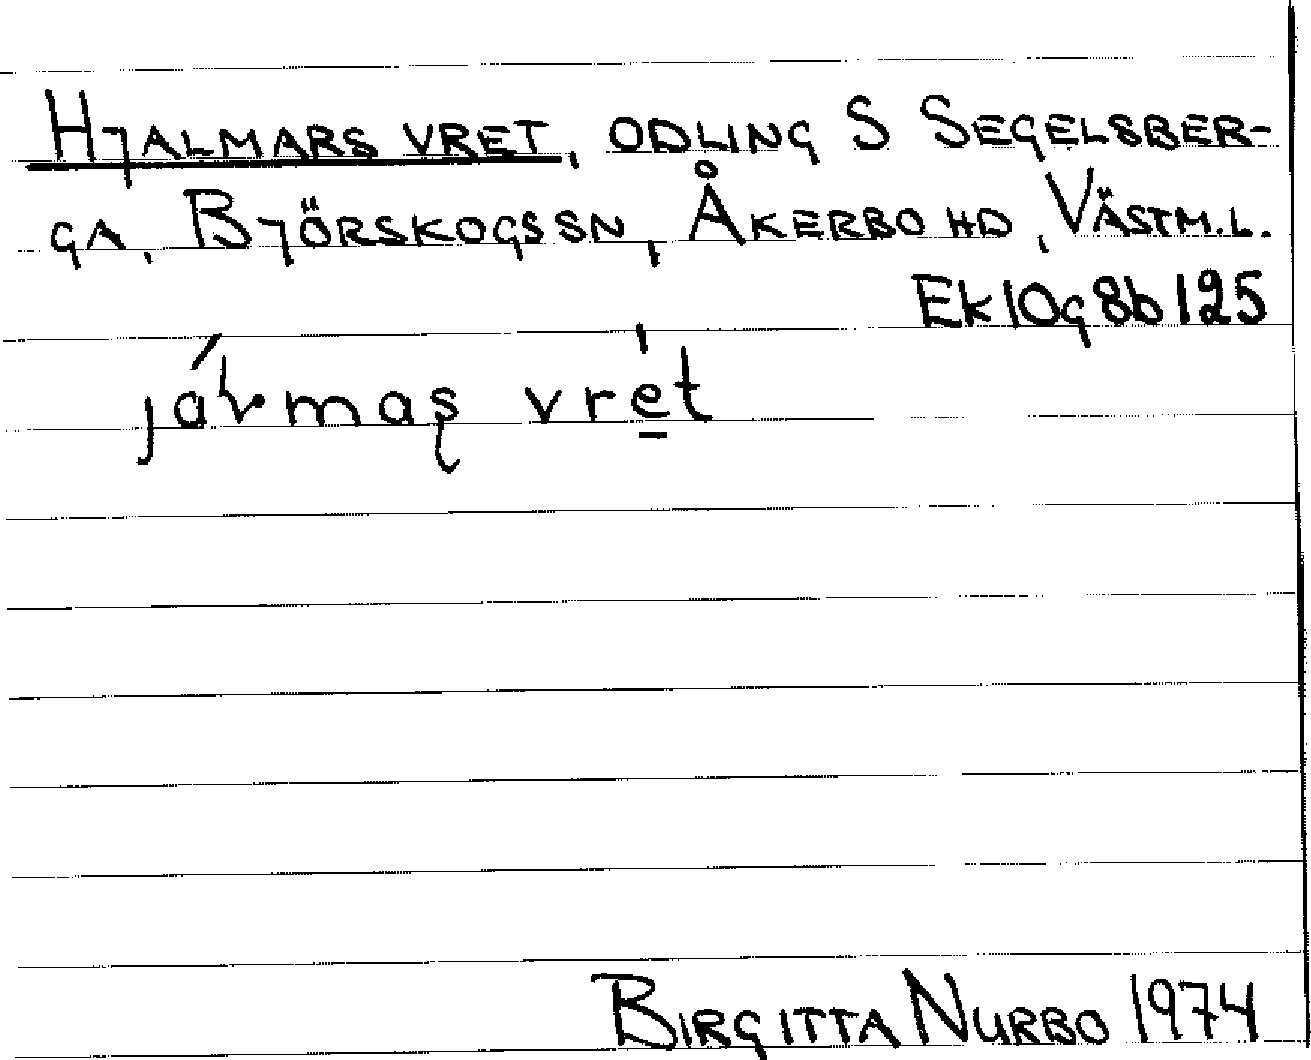 HJALMARS VRET, ODLING S SEGELSBER-
GA, BJÖRSKOGS SN, ÅKERBO HD, VÄSTM.L.
Ek 10g 8b 125
vret
BIRGITTA NURBO 1974